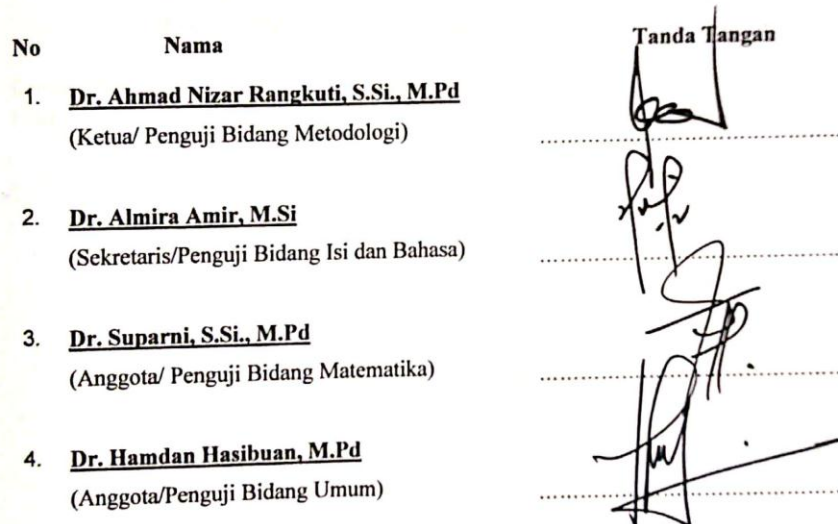 No Nama Tanda Tangan
1. Dr. Ahmad Nizar Rangkuti, S.Si., M.Pd
(Ketua/ Penguji Bidang Metodologi)
2. Dr. Almira Amir, M.Si
(Sekretaris/Penguji Bidang Isi dan Bahasa)
3. Dr. Suparni, S.Si., M.Pd
(Anggota/ Penguji Bidang Matematika)
4. Dr. Hamdan Hasibuan, M.Pd
(Anggota/Penguji Bidang Umum)